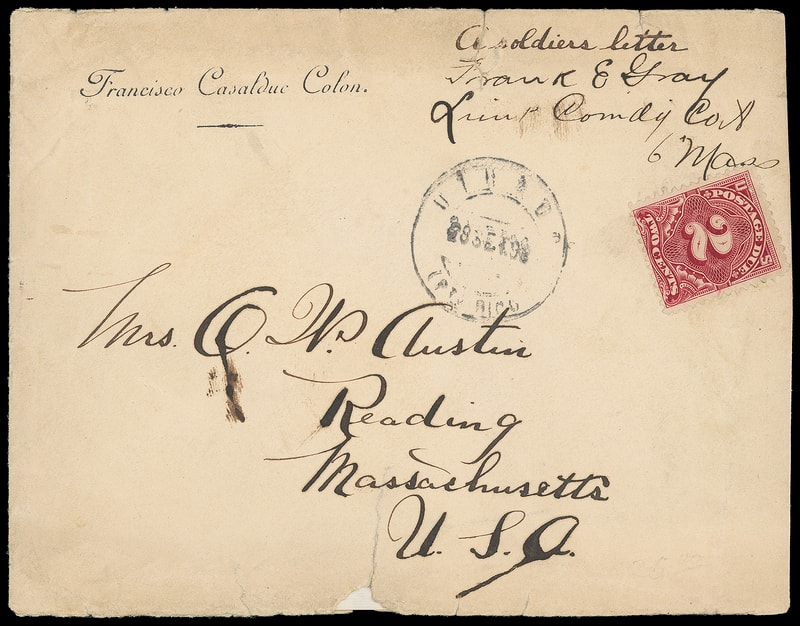 Francisco Casalduc Colon.
A soldiers letter
Frank E Gray
Lieut Comdg Co A
6 Mass
UTUADO
28 SET 98
PTO. RICO
U.S.
POSTAGE DUE
2
TWO CENTS
Mrs. O. W. Austin
Reading
Massachusetts
U. S. A.